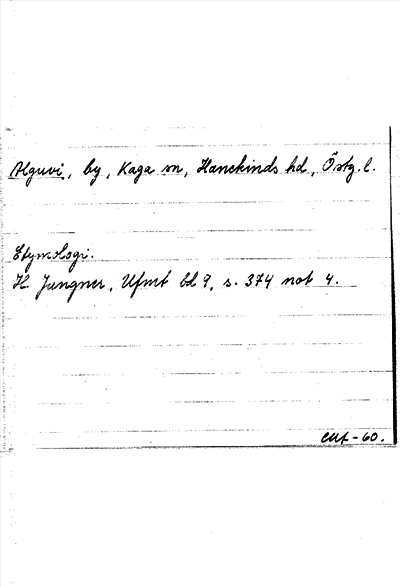 Alguvi, by, Kaga sn, Hanekinds hd, Östg. l.
Etymologi.
H Jungner, Ufmt bd 9, s. 374 not 4.